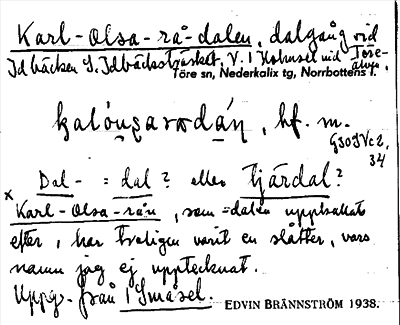 Karl-Olsa-rå-dalen, dalgång vid
Idbäcken S. Idbäcksträsket, V. I Hohusel vid Töre-
älven.
Töre sn, Nederkalix tg, Norrbottens l.
bf. m.
G30SVc2,
34
Dal- = dal? eller tjärdal?
x Karl-Olsa-rån, som =dalen uppkallats
efter, har troligen varit en slåtter, vars
namn jag ej upptecknat.
Uppg. från Småsel.
EDVIN BRÄNNSTRÖM 1938.